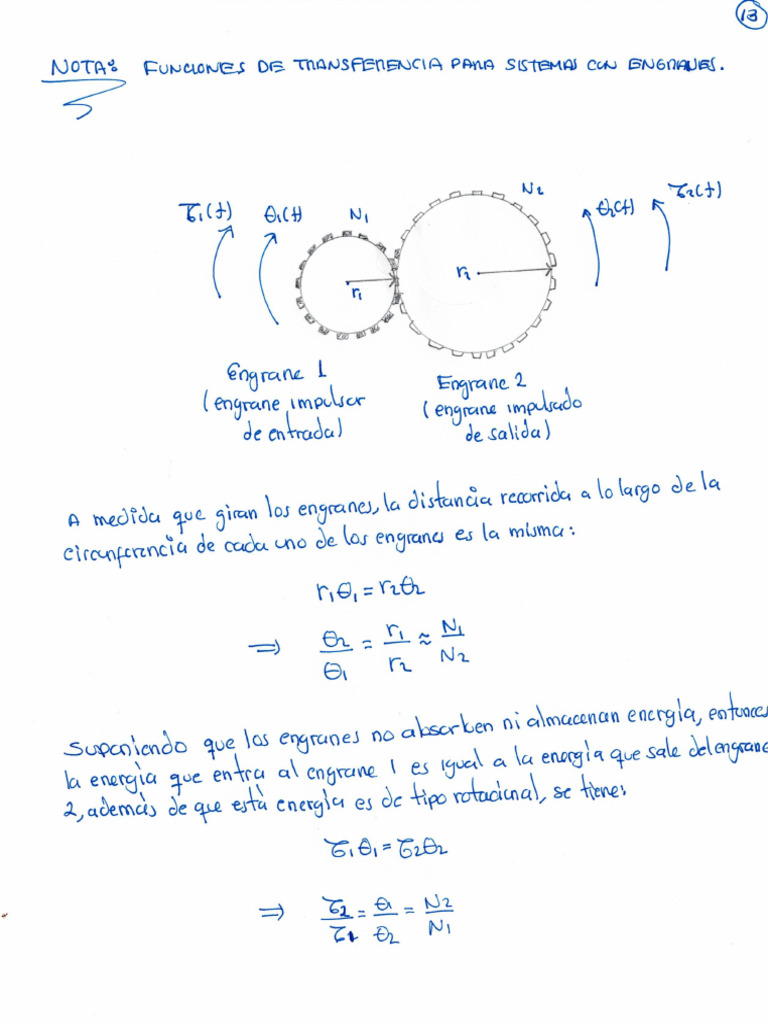 13
NOTA: FUNCIONES DE TRANSFERENCIA PARA SISTEMAS CON ENGRANES.
τ1(t) θ1(t) N1 N2 θ2(t) τ2(t)
r1 r2
Engrane 1
(engrane impulsor
de entrada)
Engrane 2
(engrane impulsado
de salida)
A medida que giran los engranes, la distancia recorrida a lo largo de la
circunferencia de cada uno de los engranes es la misma:
r1θ1 = r2θ2
⇒ θ2/θ1 = r1/r2 ≈ N1/N2
Suponiendo que los engranes no absorben ni almacenan energía, entonces
la energía que entra al engrane 1 es igual a la energía que sale del engrane
2, además de que está energía es de tipo rotacional, se tiene:
τ1θ1 = τ2θ2
⇒ τ2/τ1 = θ1/θ2 = N2/N1